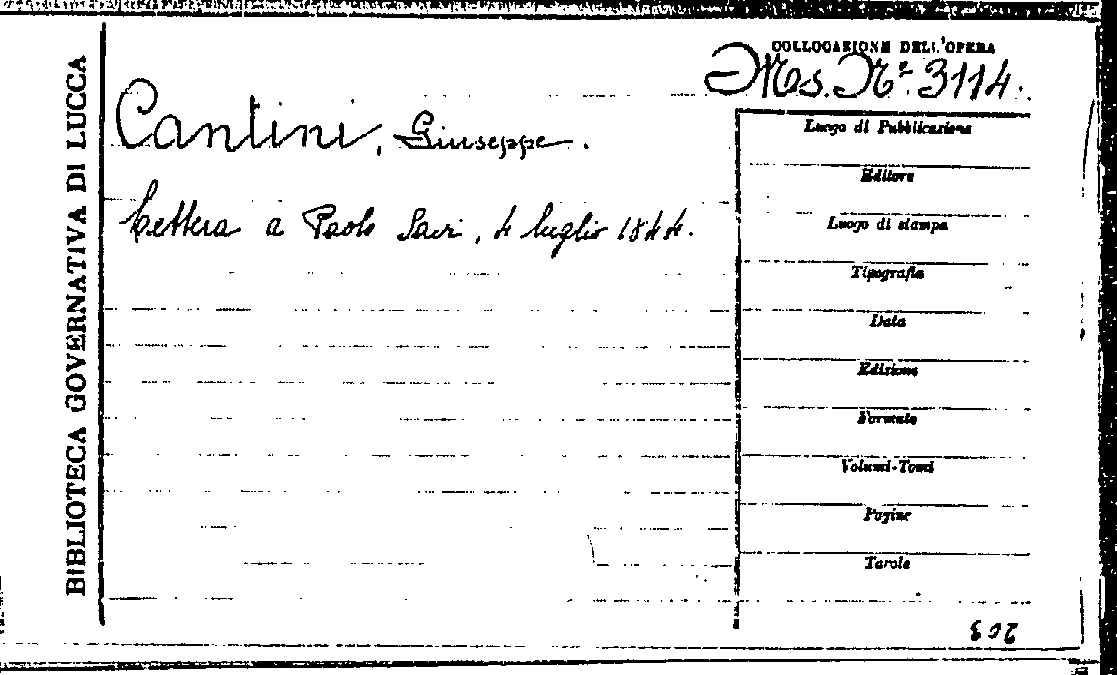 BIBLIOTECA GOVERNATIVA DI LUCCA
COLLOCAZIONE DELL'OPERA
Ms. Nº 3114.
Cantini, Giuseppe.
Lettera a Paolo Savi, 4 luglio 1844.
Luogo di Pubblicazione
Editore
Luogo di stampa
Tipografia
Data
Edizione
Formato
Volumi-Tomi
Pagine
Tavole
203